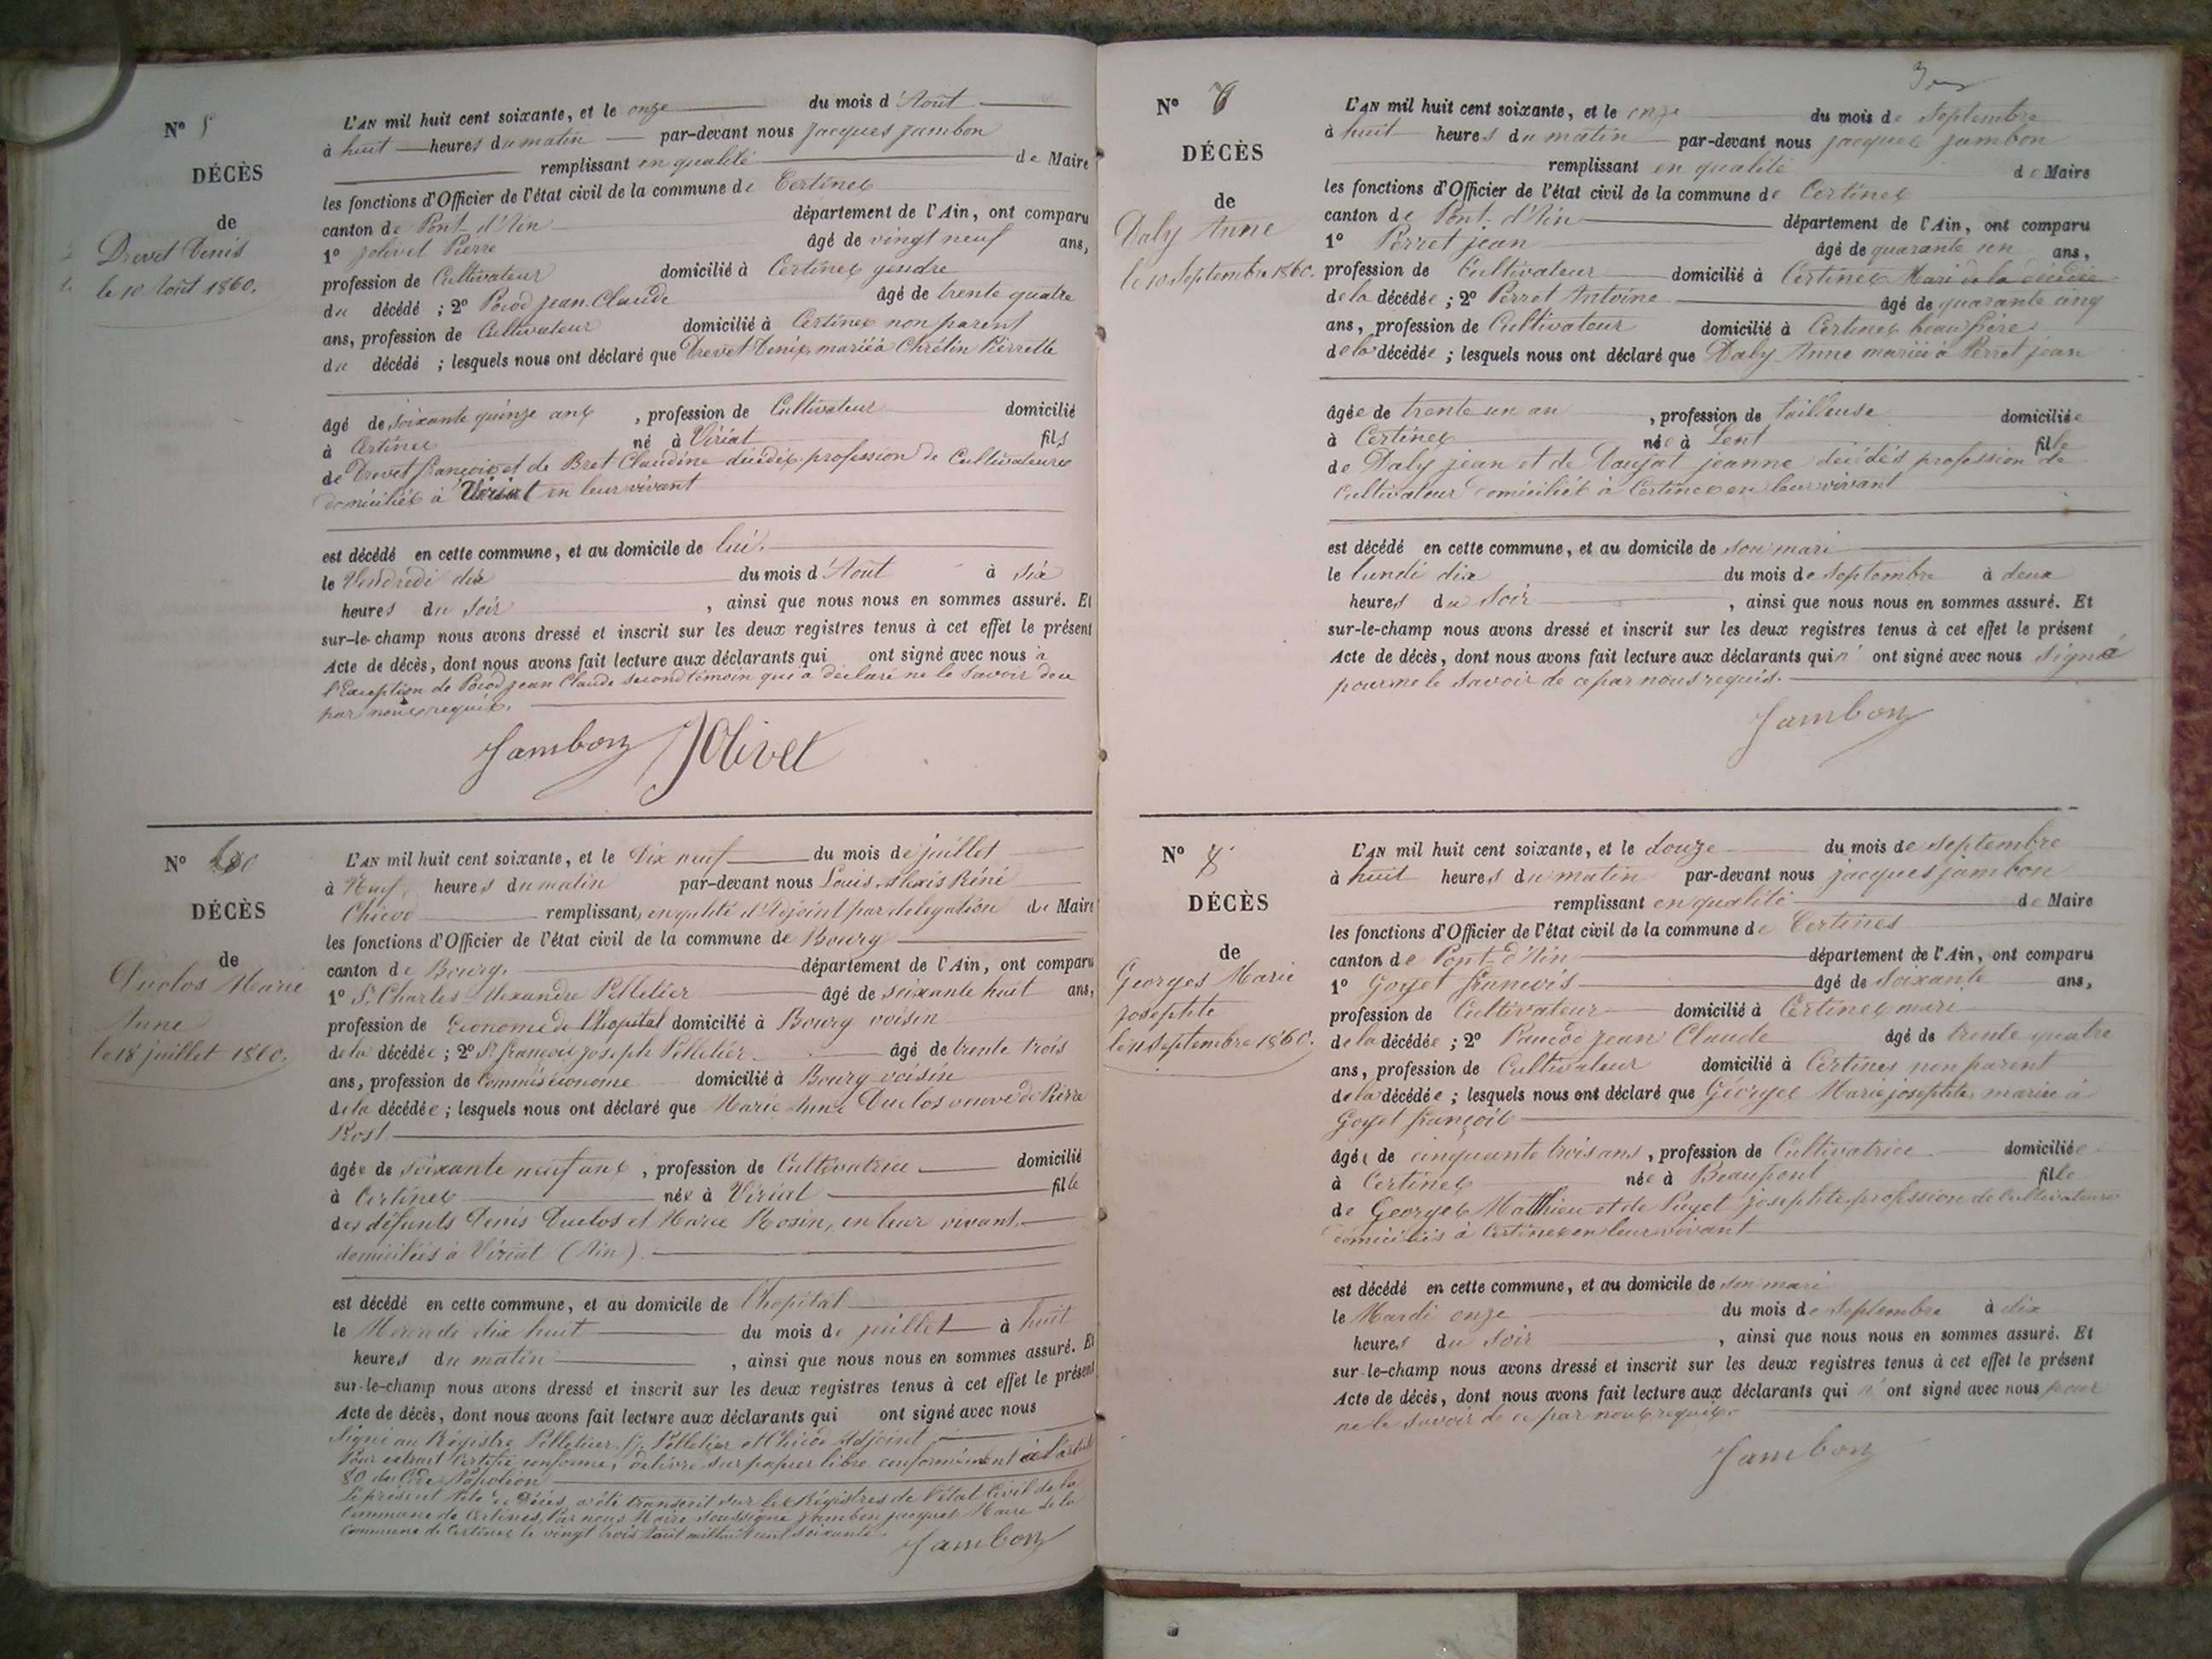 N° 5
DÉCÈS
de
Drevet Denis
le 10 Août 1860.
L'AN mil huit cent soixante, et le onze du mois d'Août
à huit heures du matin par-devant nous Jacques Jambon
remplissant en qualité de Maire
les fonctions d'Officier de l'état civil de la commune de Certines
canton de Pont-d'Ain département de l'Ain, ont comparu
1° Jolivet Pierre âgé de vingt neuf ans,
profession de Cultivateur domicilié à Certines gendre
du décédé ; 2° Jean Claude âgé de trente quatre
ans, profession de Cultivateur domicilié à Certines non parent
du décédé ; lesquels nous ont déclaré que Drevet Denis, marié à Chrétin Pierrette
âgé de soixante quinze ans, profession de Cultivateur domicilié
à Certines né à Viriat fils
de Drevet françois et de Bret Claudine décédés profession de Cultivateurs
domiciliés à Viriat en leur vivant
est décédé en cette commune, et au domicile de lui.
le Vendredi dix du mois d'Août à six
heures du soir, ainsi que nous nous en sommes assuré. Et
sur-le-champ nous avons dressé et inscrit sur les deux registres tenus à cet effet le présent
Acte de décès, dont nous avons fait lecture aux déclarants qui ont signé avec nous à
l'Exception de jean Claude second témoin qui a déclaré ne le savoir de ce
par nous requis.
Jambon Jolivet
N°
DÉCÈS
de
Duclos Marie
Anne
le 18 juillet 1860.
L'AN mil huit cent soixante, et le Dix neuf du mois de juillet
à Neuf heures du matin par-devant nous Louis Alexis Réné
Chicod remplissant en qualité d'Adjoint par délégation de Maire
les fonctions d'Officier de l'état civil de la commune de Bourg
canton de Bourg. département de l'Ain, ont comparu
1° Sr Charles Alexandre Pelletier âgé de soixante huit ans,
profession de Econome de l'hopital domicilié à Bourg voisin
de la décédée ; 2° Sr françois joseph Pelletier âgé de trente trois
ans, profession de Commis économe domicilié à Bourg voisin
de la décédée ; lesquels nous ont déclaré que Marie Anne Duclos veuve de Pierre
Rost.
âgée de soixante neuf ans, profession de Cultivatrice domicilié
à Certines née à Viriat fille
des défunts Denis Duclos et Marie Rosin, en leur vivant,
domiciliés à Viriat (Ain).
est décédé en cette commune, et au domicile de l'hopital
le Mercredi dix huit du mois de juillet à huit
heures du matin, ainsi que nous nous en sommes assuré. Et
sur-le-champ nous avons dressé et inscrit sur les deux registres tenus à cet effet le présent
Acte de décès, dont nous avons fait lecture aux déclarants qui ont signé avec nous
Signé au Régistre Pelletier, fj. Pelletier et Chicod Adjoint
Pour extrait Certifié conforme, délivré sur papier libre conformément à l'article
80 du Code Napoléon
Le présent Acte de Décès, a été transcrit sur les Régistres de l'état Civil de la
Commune de Certines, Par nous Maire soussigné Jambon jacques Maire de la
Commune de Certines le vingt trois Août mil huit cent soixante.
Jambon
N°
DÉCÈS
de
Daly Anne
le 10 Septembre 1860.
L'AN mil huit cent soixante, et le onze du mois de Septembre
à huit heures du matin par-devant nous jacques jambon
remplissant en qualité de Maire
les fonctions d'Officier de l'état civil de la commune de Certines
canton de Pont-d'Ain département de l'Ain, ont comparu
1° Perret jean âgé de quarante un ans,
profession de Cultivateur domicilié à Certines Mari de la décédée
de la décédée ; 2° Perret Antoine âgé de quarante cinq
ans, profession de Cultivateur domicilié à Certines beau frère
de la décédée ; lesquels nous ont déclaré que Daly Anne mariée à Perret jean
âgée de trente un an, profession de tailleuse domiciliée
à Certines née à Lent fille
de Daly jean et de Vaujat jeanne décédés profession de
Cultivateur domiciliés à Certines en leur vivant
est décédé en cette commune, et au domicile de son mari
le lundi dix du mois de septembre à deux
heures du soir, ainsi que nous nous en sommes assuré. Et
sur-le-champ nous avons dressé et inscrit sur les deux registres tenus à cet effet le présent
Acte de décès, dont nous avons fait lecture aux déclarants qui n' ont signé avec nous signé
pour ne le savoir de ce par nous requis.
Jambon
N° 8
DÉCÈS
de
Georges Marie
josephte
le 11 septembre 1860.
L'AN mil huit cent soixante, et le douze du mois de septembre
à huit heures du matin par-devant nous jacques jambon
remplissant en qualité de Maire
les fonctions d'Officier de l'état civil de la commune de Certines
canton de Pont-d'Ain département de l'Ain, ont comparu
1° Goyet françois âgé de soixante ans,
profession de Cultivateur domicilié à Certines mari
de la décédée ; 2° jean Claude âgé de trente quatre
ans, profession de Cultivateur domicilié à Certines non parent
de la décédée ; lesquels nous ont déclaré que Géorges Marie josephte, mariée à
Goyet françois
âgée de cinquante trois ans, profession de Cultivatrice domiciliée
à Certines née à Beaupont fille
de Georges Matthieu et de Puget josephte profession de Cultivateurs
domiciliés à Certines en leur vivant
est décédé en cette commune, et au domicile de son mari
le Mardi onze du mois de septembre à dix
heures du soir, ainsi que nous nous en sommes assuré. Et
sur-le-champ nous avons dressé et inscrit sur les deux registres tenus à cet effet le présent
Acte de décès, dont nous avons fait lecture aux déclarants qui n' ont signé avec nous pour
ne le savoir de ce par nous requis.
Jambon